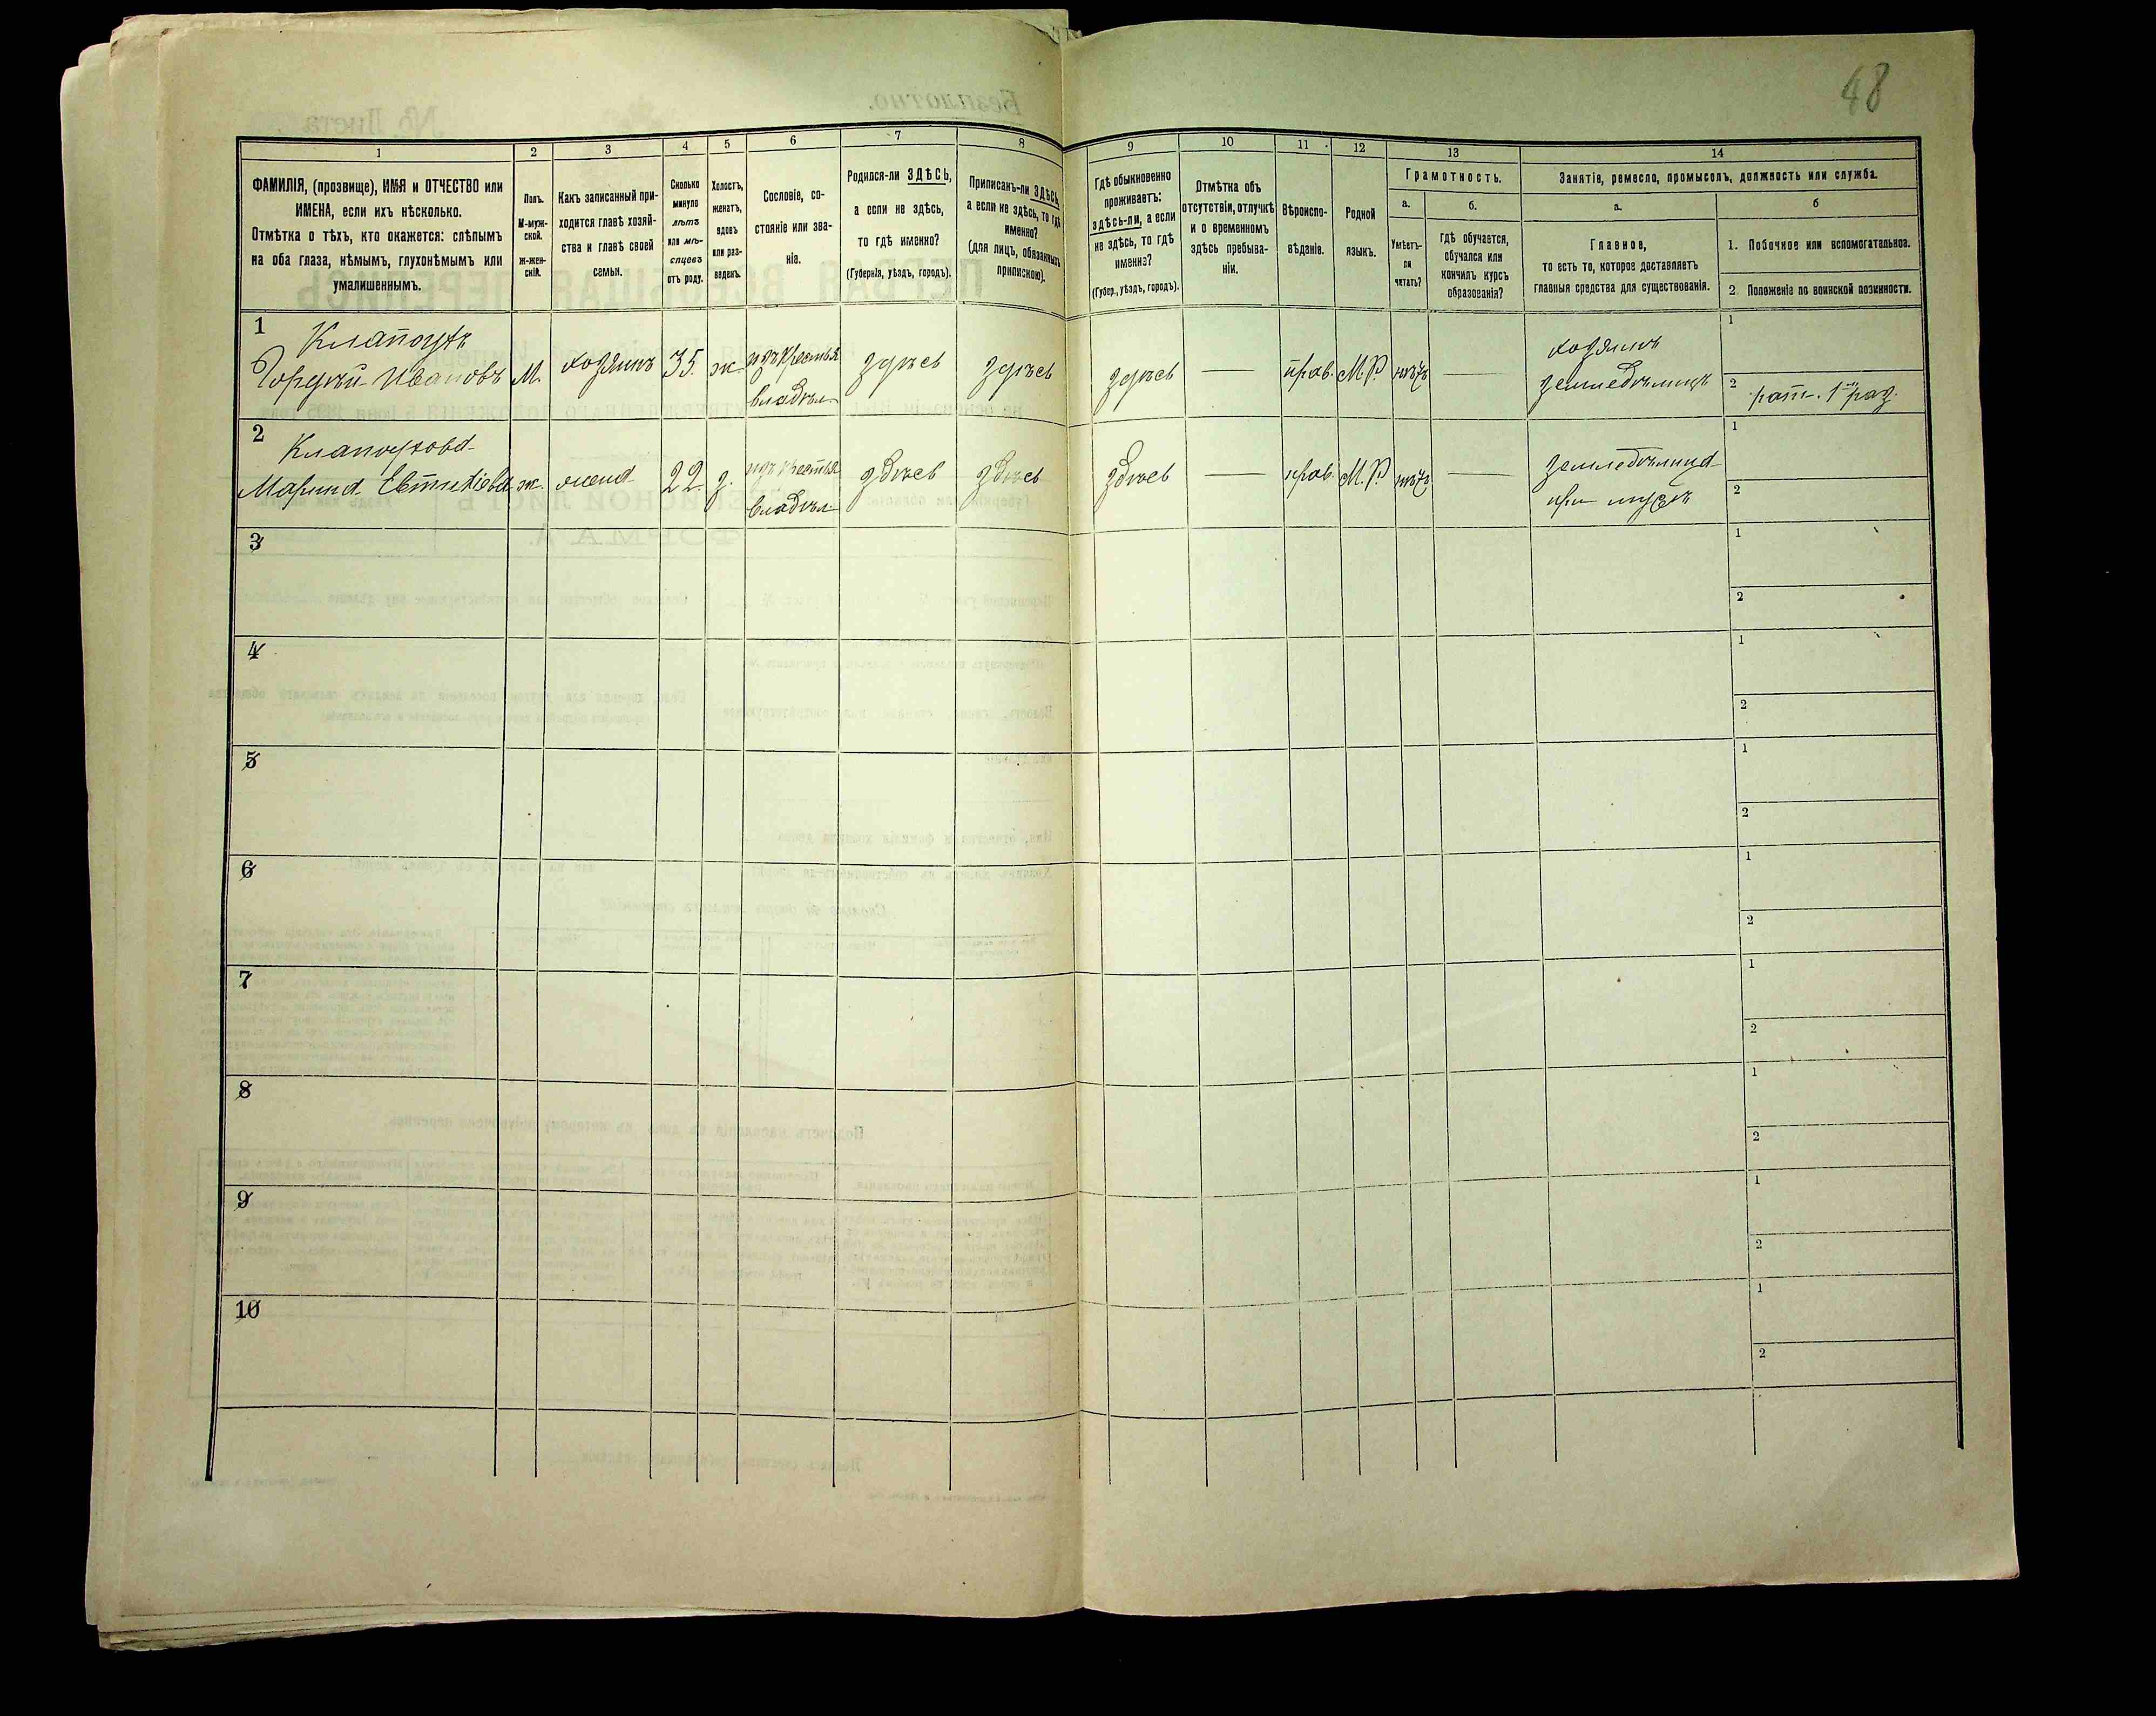 48
1
2
3
4
5
6
7
8
9
10
11
12
13
14
ФАМИЛІЯ, (прозвище), ИМЯ и ОТЧЕСТВО или
ИМЕНА, если ихъ нѣсколько.
Отмѣтка о тѣхъ, кто окажется: слѣпымъ
на оба глаза, нѣмымъ, глухонѣмымъ или
умалишеннымъ.
Полъ.
М-муж-
ской.
ж-жен-
скій.
Какъ записанный при-
ходится главѣ хозяй-
ства и главѣ своей
семьи.
Сколько
минуло
лѣтъ
или мѣ-
сяцевъ
отъ роду.
Холостъ,
женатъ,
вдовъ
или раз-
веденъ.
Сословіе, со-
стояніе или зва-
ніе.
Родился-ли ЗДѢСЬ,
а если не здѣсь,
то гдѣ именно?
(Губернія, уѣздъ, городъ).
Приписанъ-ли ЗДѢСЬ,
а если не здѣсь, то гдѣ
именно?
(для лицъ, обязанныхъ
припискою).
Гдѣ обыкновенно
проживаетъ:
здѣсь-ли, а если
не здѣсь, то гдѣ
именно?
(Губер., уѣздъ, городъ).
Отмѣтка объ
отсутствіи, отлучкѣ
и о временномъ
здѣсь пребыва-
ніи.
Вѣроиспо-
вѣданіе.
Родной
языкъ.
Грамотность.
а.
Умѣетъ-
ли
читать?
б.
гдѣ обучается,
обучался или
кончилъ курсъ
образованія?
Занятіе, ремесло, промыселъ, должность или служба.
а.
Главное,
то есть то, которое доставляетъ
главныя средства для существованія.
б
1. Побочное или вспомогательное.
2. Положеніе по воинской повинности.
1
Клапоухъ
Гордѣй Ивановъ М. хозяинъ 35. ж. изъ крестья владѣл здѣсь здѣсь здѣсь — прав. М.Р. нѣтъ — хозяинъ
земледѣлецъ
1
2 рат. 1 раз.
2
Клапоухова
Марина Евтихіева ж. жена 22. з. изъ крестья владѣл здѣсь здѣсь здѣсь — прав. М.Р. нѣтъ — земледѣлица
при мужѣ
1
2
3
1
2
4
1
2
5
1
2
6
1
2
7
1
2
8
1
2
9
1
2
10
1
2